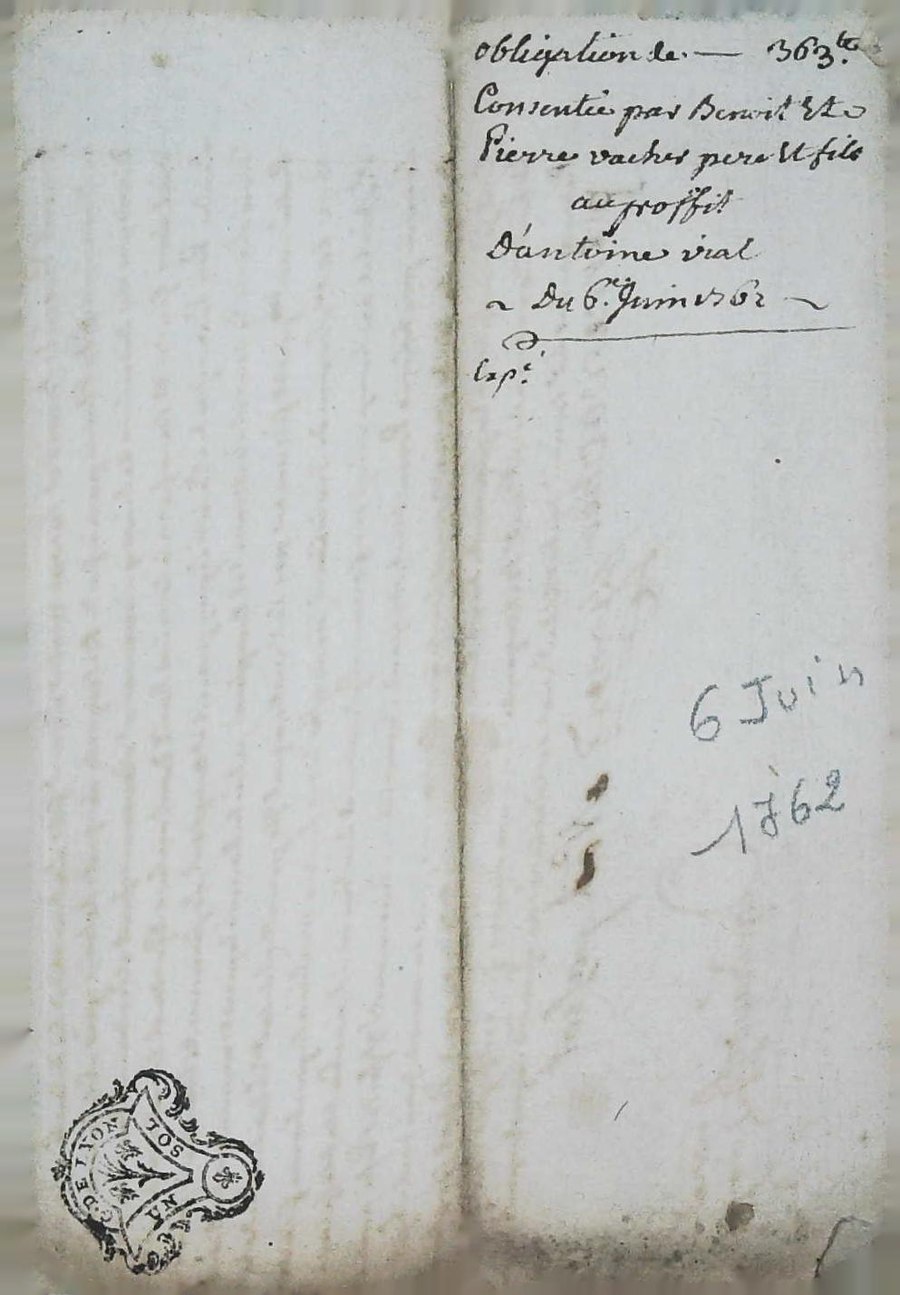 obligation de — 363ᵗᵗ.
Consentie par Benoit Et
Pierre vacher pere Et fils
au proffit
D'antoine vial
~ Du 6.ᵉ Juin 1762 ~
Exp.é
6 Juin
1762
G. DE LYON
UN SOL